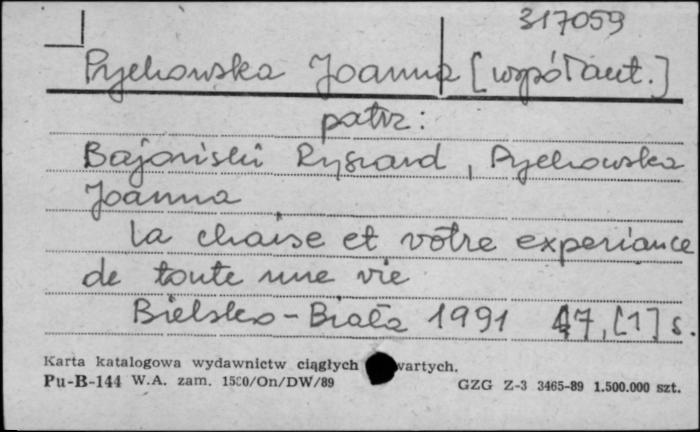 317059
Pychowska Joanna [współaut.]
patrz:
Bajoński Ryszard, Pychowska
Joanna
La chaise et vôtre experiance
de toute une vie
Bielsko-Biała 1991 47, [1] s.
Karta katalogowa wydawnictw ciągłych wartych.
Pu-B-144 W.A. zam. 1500/On/DW/89 GZG Z-3 3465-89 1.500.000 szt.